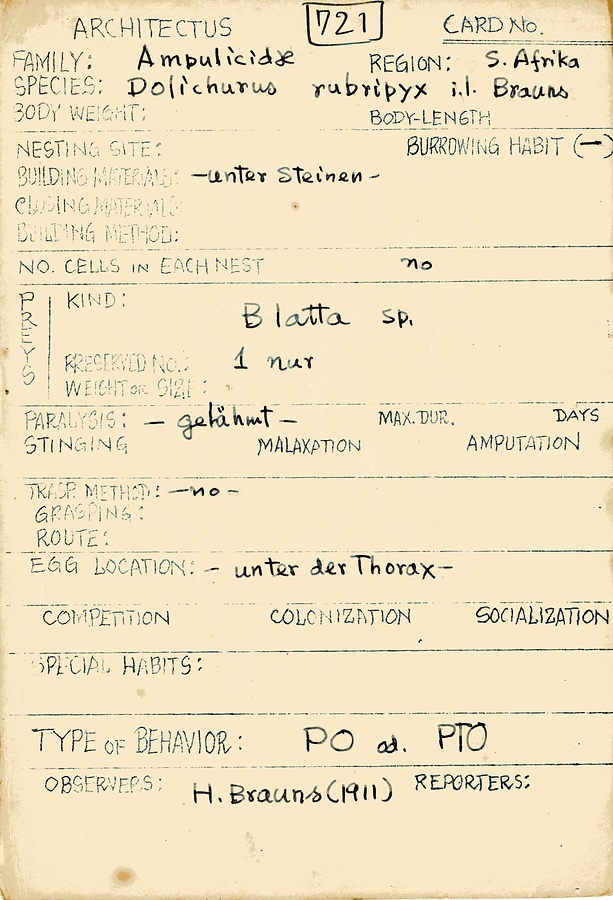 ARCHITECTUS 721 CARD NO.
FAMILY: Ampulicidæ REGION: S. Afrika
SPECIES: Dolichurus rubripyx i.l. Brauns
BODY WEIGHT: BODY-LENGTH
NESTING SITE: BURROWING HABIT (—)
BUILDING MATERIALS: —unter Steinen—
CLOSING MATERIALS:
BUILDING METHOD:
NO. CELLS IN EACH NEST no
PREYS KIND: Blatta sp.
PRESERVED NO.: 1 nur
WEIGHT OR SIZE:
PARALYSIS: — gelähmt — MAX. DUR. DAYS
STINGING MALAXATION AMPUTATION
TRASP. METHOD: —no—
GRASPING:
ROUTE:
EGG LOCATION: — unter der Thorax—
COMPETITION COLONIZATION SOCIALIZATION
SPECIAL HABITS:
TYPE OF BEHAVIOR: PO od. PTO
OBSERVERS: H. Brauns (1911) REPORTERS: